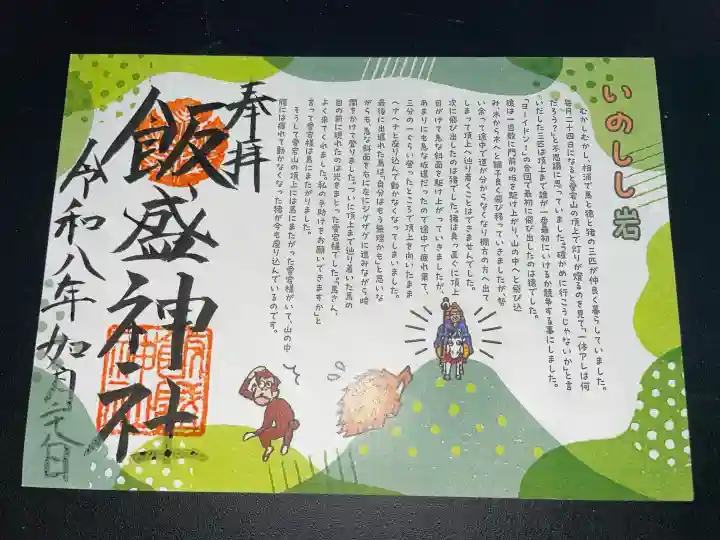 いのしし岩
むかしむかし、相浦で馬と猿と猪の三匹が仲良く暮らしていました。
毎月二十四日になると愛宕山の頂上で灯りが燈るのを見て「一体アレは何
だろう？」と不思議に思っていました。「確かめに行こうじゃないか」と言
いだした三匹は頂上まで誰が一番最初にいけるか競争する事にしました。
「ヨーイドン！」の合図で最初に飛び出したのは猿でした。
猿は一目散に門前の坂を駆け上がり、山の中へと飛び込
み木から木へと調子良く飛び移っていきましたが、勢
い余って途中で道が分からなくなり棚方の方へ出て
しまって頂上へ辿り着くことはできませんでした。
次に飛び出したのは猪でした。猪は真っ直ぐに頂上
目がけて急な斜面を駆け上がっていきましたが、
あまりにも急な坂道だったので途中で疲れ果て、
三分の一ぐらい登ったところで頂上を向いたまま
ヘナヘナと座り込んで動かなくなってしまいました。
最後に出遅れた馬は「自分はもう無理かも」と思いな
がらも、急な斜面を右に左にジグザグに進みながら時
間をかけて登りました。ついに頂上まで辿り着いた馬の
目の前に現れたのは光をまとった愛宕様でした。「馬さん、
よく来てくれました。私の手助けをお願いできますか」と
言って愛宕様は馬にまたがりました。
そうして愛宕山の頂上には馬にまたがった愛宕様がいて、山の中
腹には疲れて動かなくなった猪が今も座り込んでいるのです。
奉拝
飯盛神社
令和八年如月二十八日